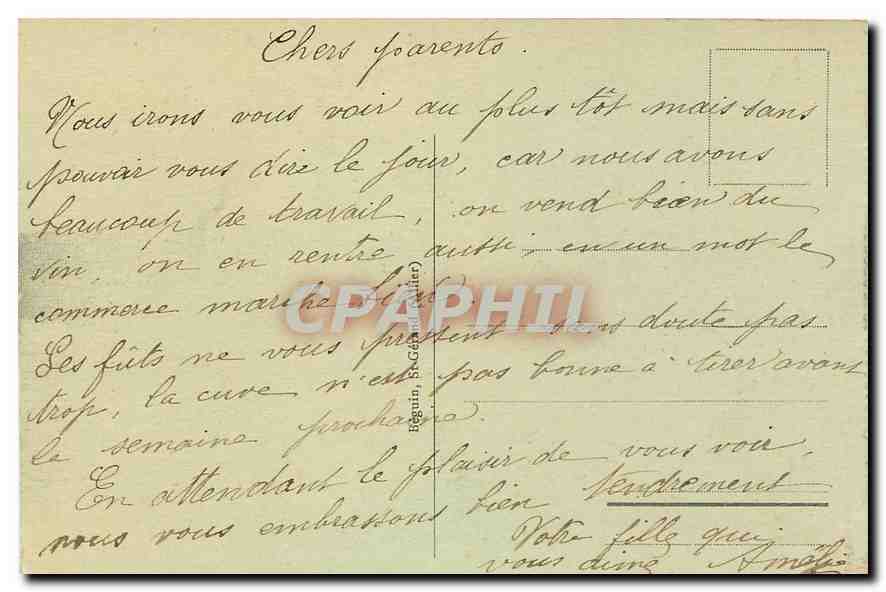 Chers parents.
Nous irons vous voir au plus tôt mais sans
pouvoir vous dire le jour, car nous avons
beaucoup de travail, on vend bien du
vin, on en rentre aussi, en un mot le
commerce marche
Les fûts ne vous pressent sans doute pas
trop, la cuve n'est pas bonne à tirer avant
la semaine prochaine.
En attendant le plaisir de vous voir,
nous vous embrassons bien tendrement
Votre fille qui
vous aime Amélie
Béguin, St-Gérand (Allier)
CPAPHIL